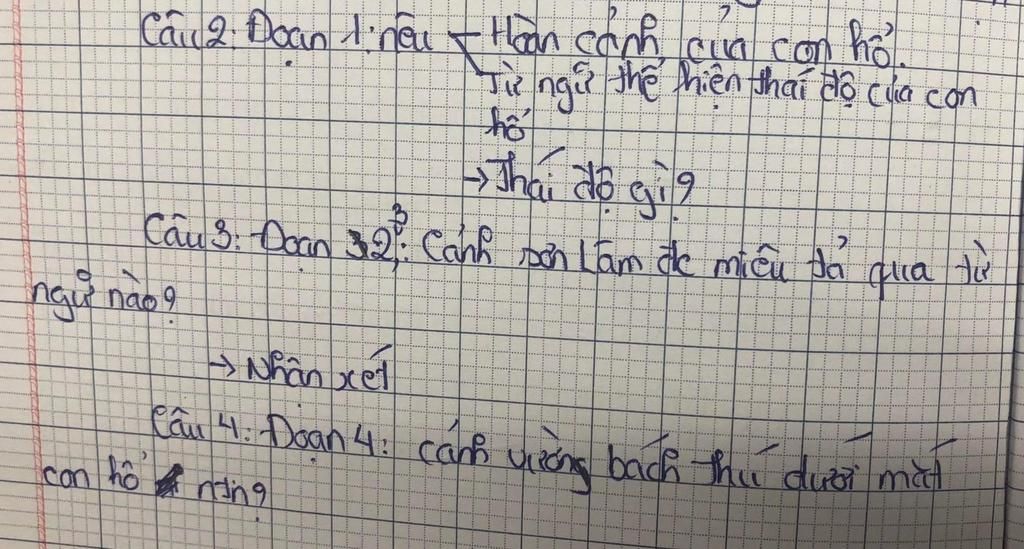 Câu 2: Đoạn 1: nêu - Hoàn cảnh của con hổ.
Từ ngữ thể hiện thái độ của con
hổ
→ Thái độ gì?
Câu 3: Đoạn 2, 3: Cảnh sơn lâm đc miêu tả qua từ
ngữ nào?
→ Nhận xét
Câu 4: Đoạn 4: cảnh vường bách thú dưới mắt
con hổ ntn?